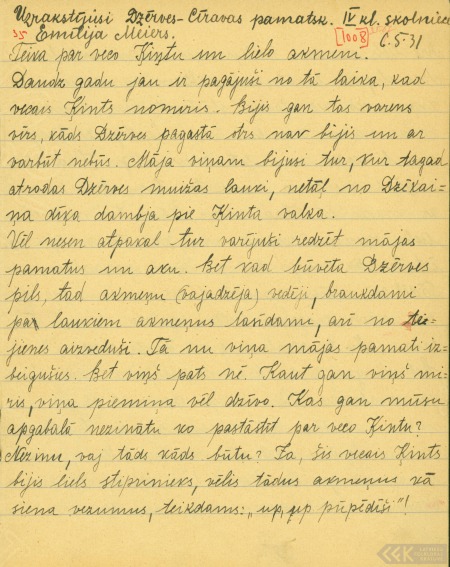 Uzrakstījusi Dzērves-Cīravas pamatsk. IV kl. skolniece
35 Emilija Meiers. [1008] 6.5.31
Teika par veco Ķintu un lielo akmeni.
Daudz gadu jau ir pagājuši no tā laika, kad
vecais Ķints nomiris. Bijis gan tas varens
vīrs, kāds Dzērves pagastā otrs nav bijis un ar
varbūt nebūs. Māja viņam bijusi tur, kur tagad
atrodas Dzērves muižas lauki, netāļ no Dzēkai=
ņa dīķa dambja pie Ķinta valka.
Vēl nesen atpakaļ tur varējuši redzēt mājas
pamatus un aku. Bet kad būvēta Dzērves
pils, tad akmeņu (vajadzēja) vedēji, braukdami
pa laukiem akmeņus lasīdami, arī no tu=
jienes aizveduši. Tā nu viņa mājas pamati iz=
beigušies. Bet viņš pats nē. Kaut gan viņš mi=
ris, viņa piemiņa vēl dzīvo. Kas gan mūsu
apgabalā nezinātu ko pastāstīt par veco Ķintu?
Nezinu, vaj tāds kāds būtu? Ja, šis vecais Ķints
bijis liels stiprinieks, vēlis tādus akmeņus kā
siena vezumus, teikdams: „up, up pūpēdīši"!